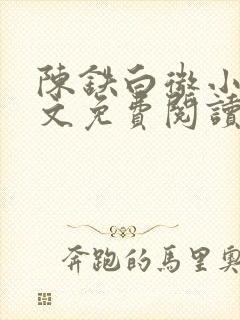 陳鉄白微小
文免費閱讀
奔跑的馬里奧